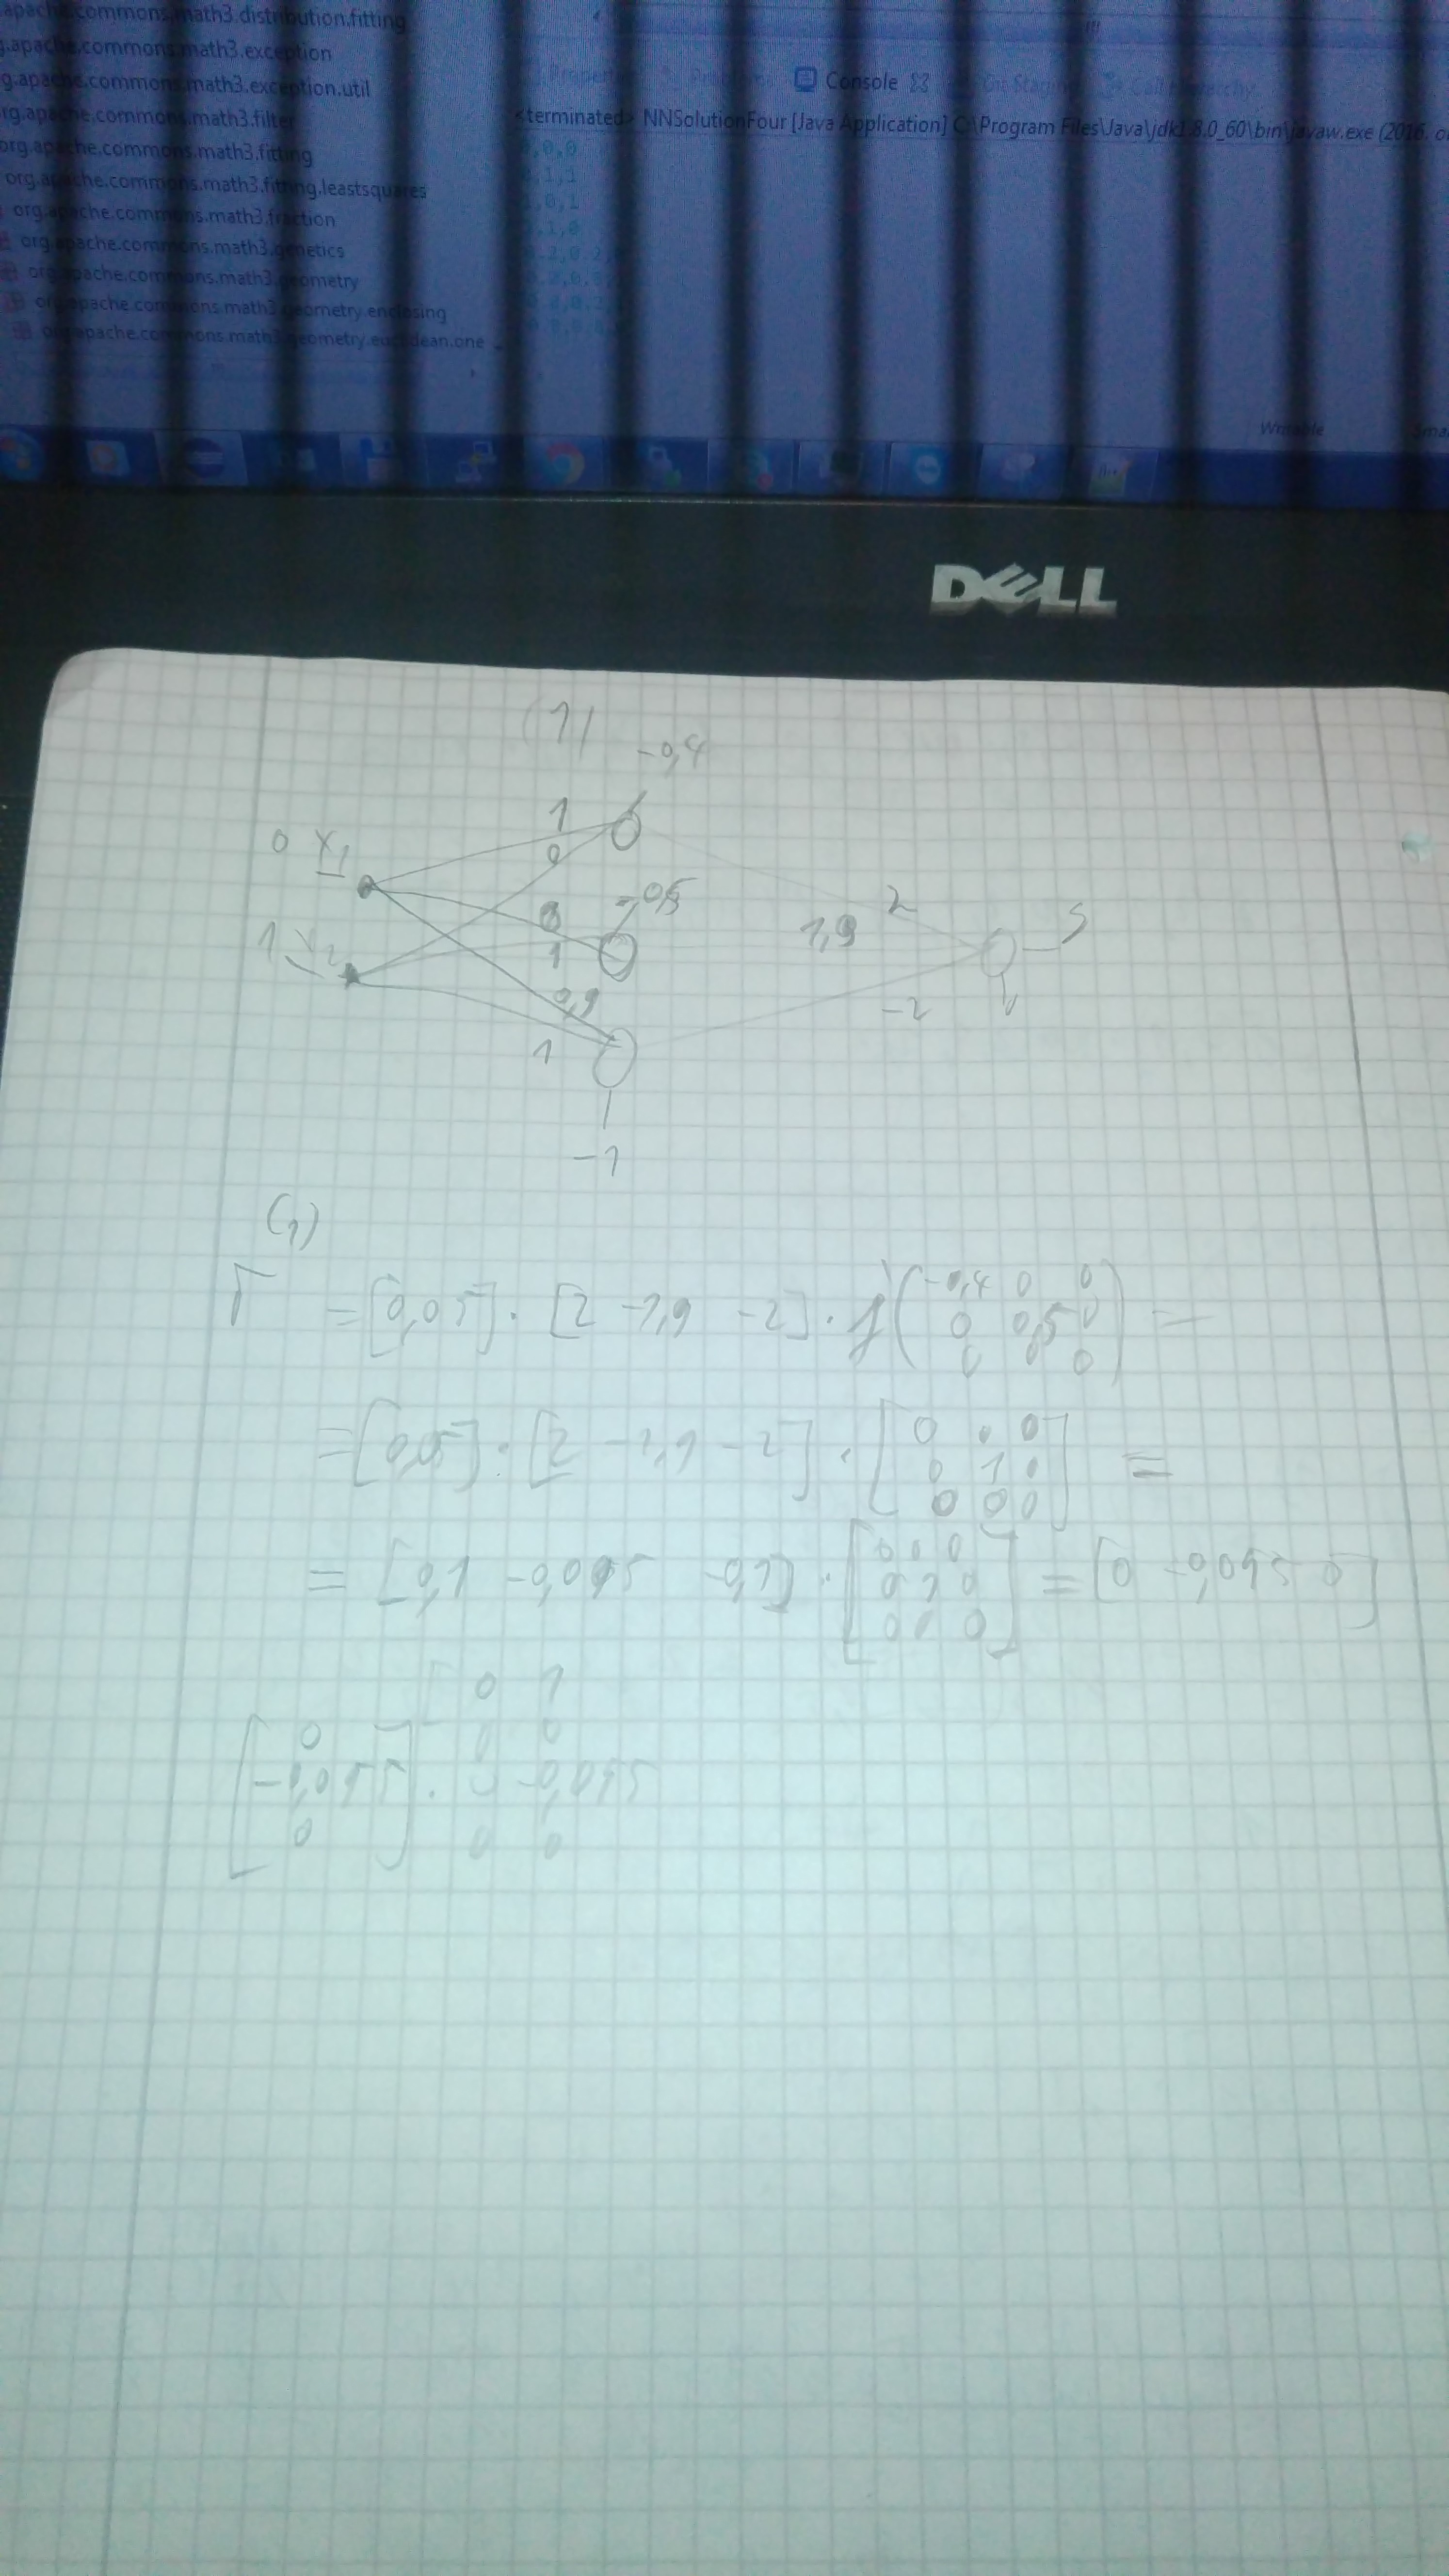 apache.commons.math3.distribution.fitting
g.apache.commons.math3.exception
g.apache.commons.math3.exception.util
rg.apache.commons.math3.filter
org.apache.commons.math3.fitting
org.apache.commons.math3.fitting.leastsquares
org.apache.commons.math3.fraction
org.apache.commons.math3.genetics
org.apache.commons.math3.geometry
org.apache.commons.math3.geometry.enclosing
org.apache.commons.math3.geometry.euclidean.one
Console
<terminated> NNSolutionFour [Java Application] C:\Program Files\Java\jdk1.8.0_60\bin\javaw.exe (2016. o
,0,0
,1,1
,0,1
,1,0
Writable
Sma
DELL
(1)
-0,4
1
0 x1
0
-0,5
2
1
1,9
1
0,9
-2
1
-1
(1)
= [0,05] · [2 -1,9 -2] · f'( -0,4 0 0
0 0,5 0
0 0 0 ) =
= [0,05] · [2 -1,9 -2] · [ 0 0 0
0 1 0
0 0 0 ] =
= [0,1 -0,095 -0,1] · [ 0 0 0
0 1 0
0 0 0 ] = [0 -0,095 0]
0 1
0 0 0
-0,095 · 0 -0,095
0 0 0